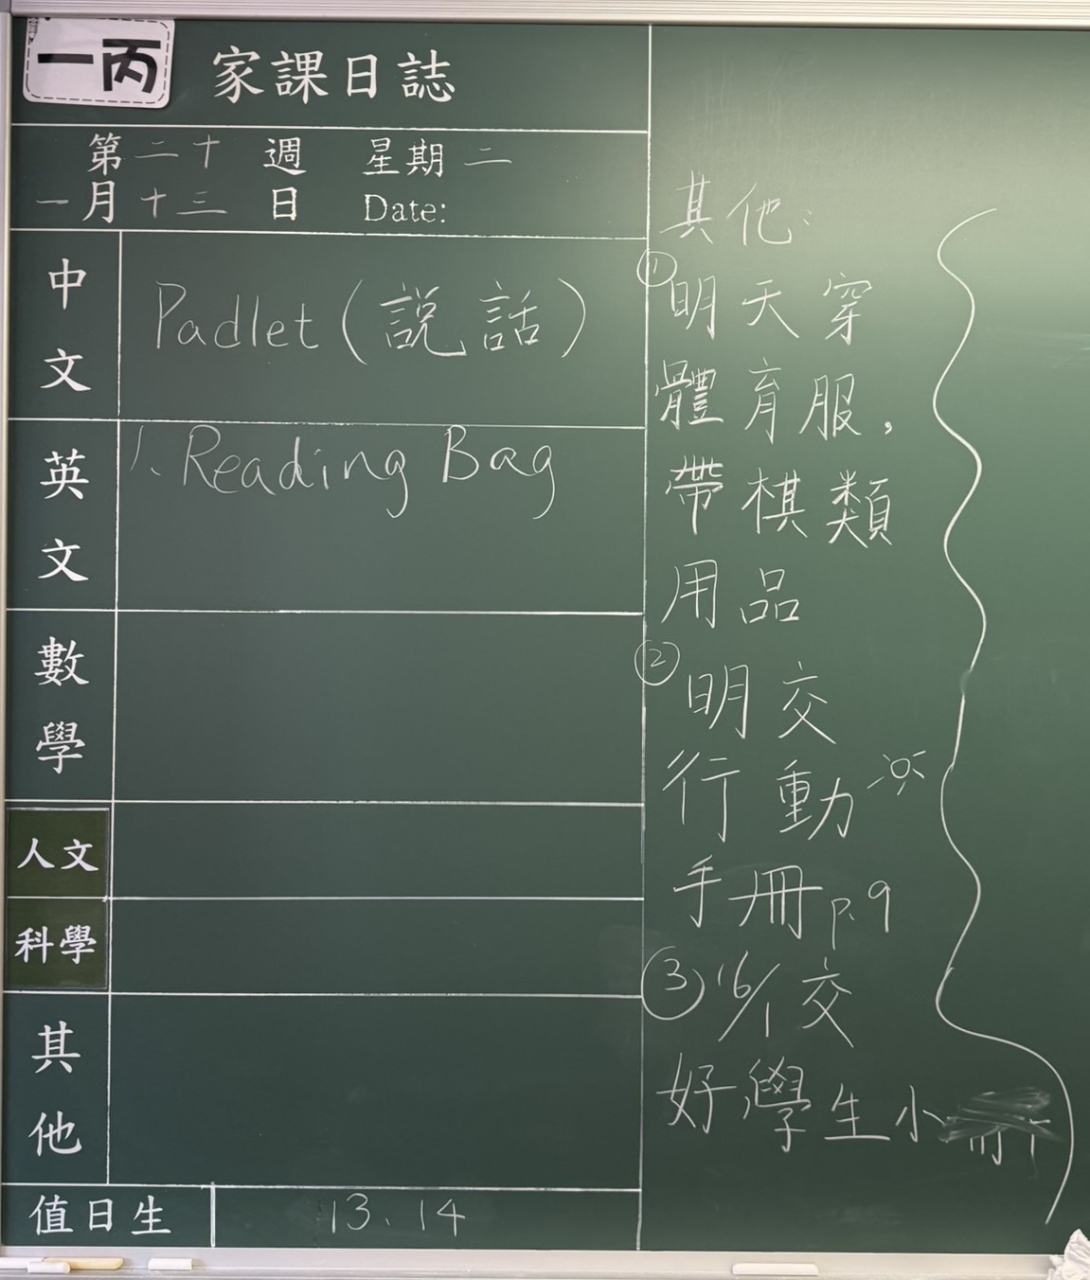 一丙 家課日誌
第二十週 星期二
一月十三日 Date:
中文 Padlet(說話)
英文 1. Reading Bag
數學
人文
科學
其他
值日生 13、14
其他:
① 明天穿
體育服,
帶棋類
用品
② 明交
行動
手冊 p.9
③ 16/1 交
好學生小